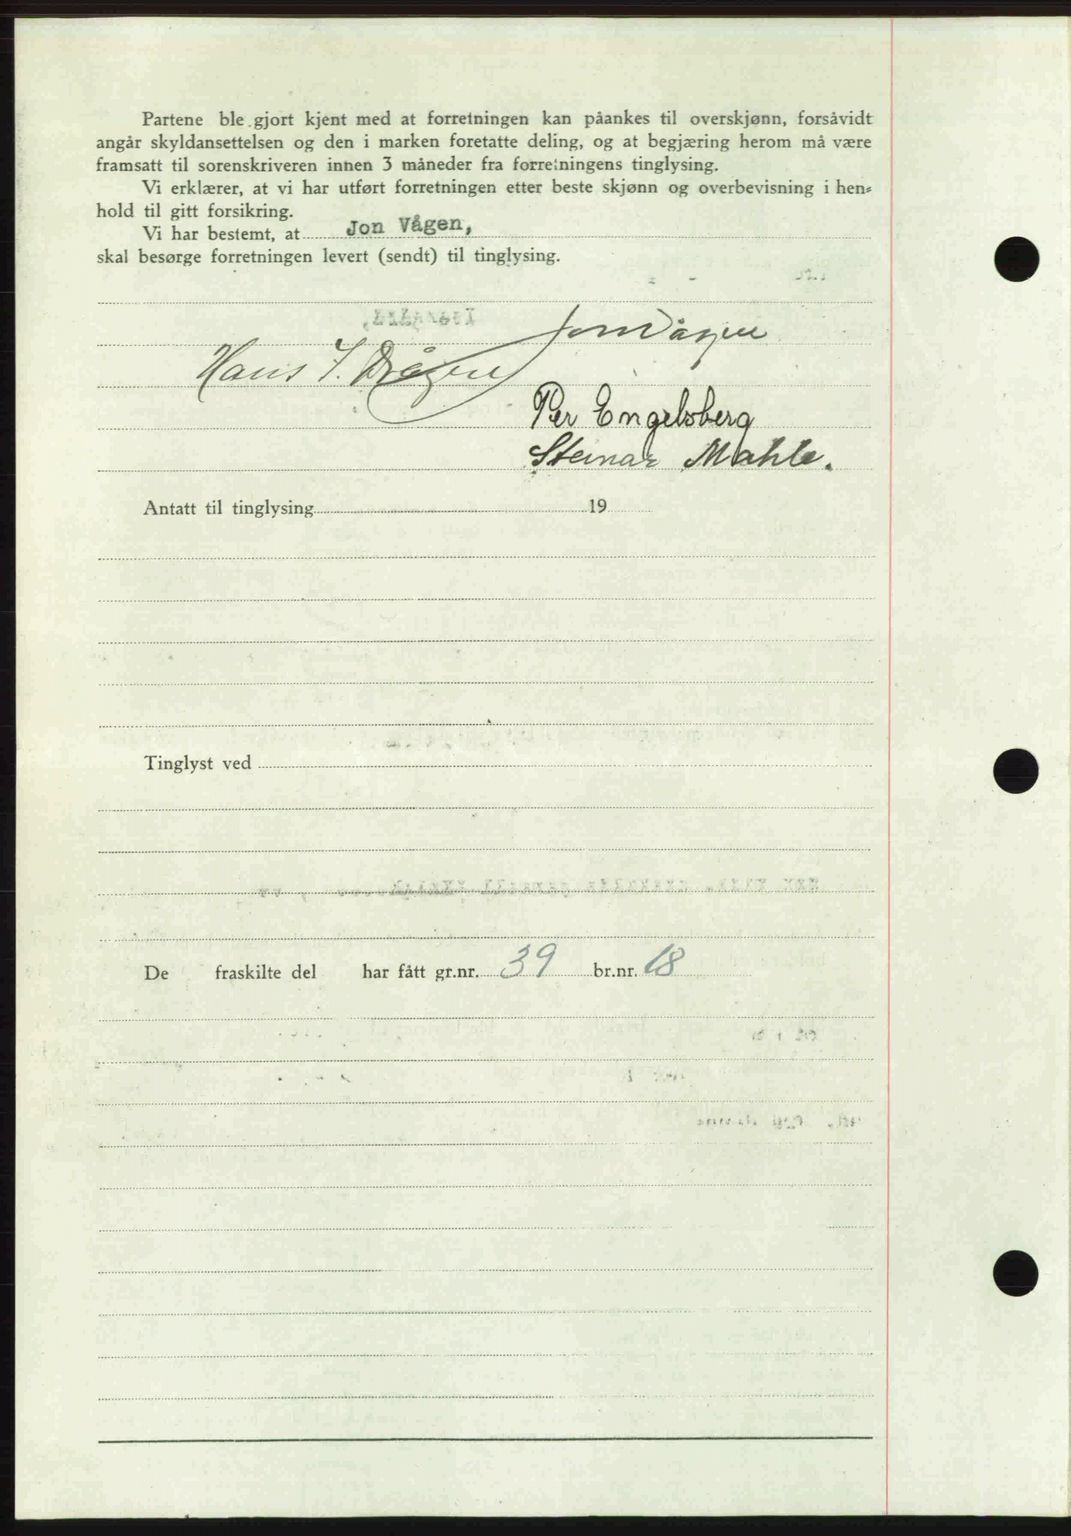 Partene ble gjort kjent med at forretningen kan påankes til overskjønn, forsåvidt
angår skyldansettelsen og den i marken foretatte deling, og at begjæring herom må være
framsatt til sorenskriveren innen 3 måneder fra forretningens tinglysing.
Vi erklærer, at vi har utført forretningen etter beste skjønn og overbevisning i hen=
hold til gitt forsikring.
Vi har bestemt, at Jon Vågen,
skal besørge forretningen levert (sendt) til tinglysing.
Jon Vågen
Hans I. Drågen
Per Engelsberg
Steinar Mahle.
Antatt til tinglysing 19
Tinglyst ved
De fraskilte del har fått gr.nr. 39 br.nr. 18